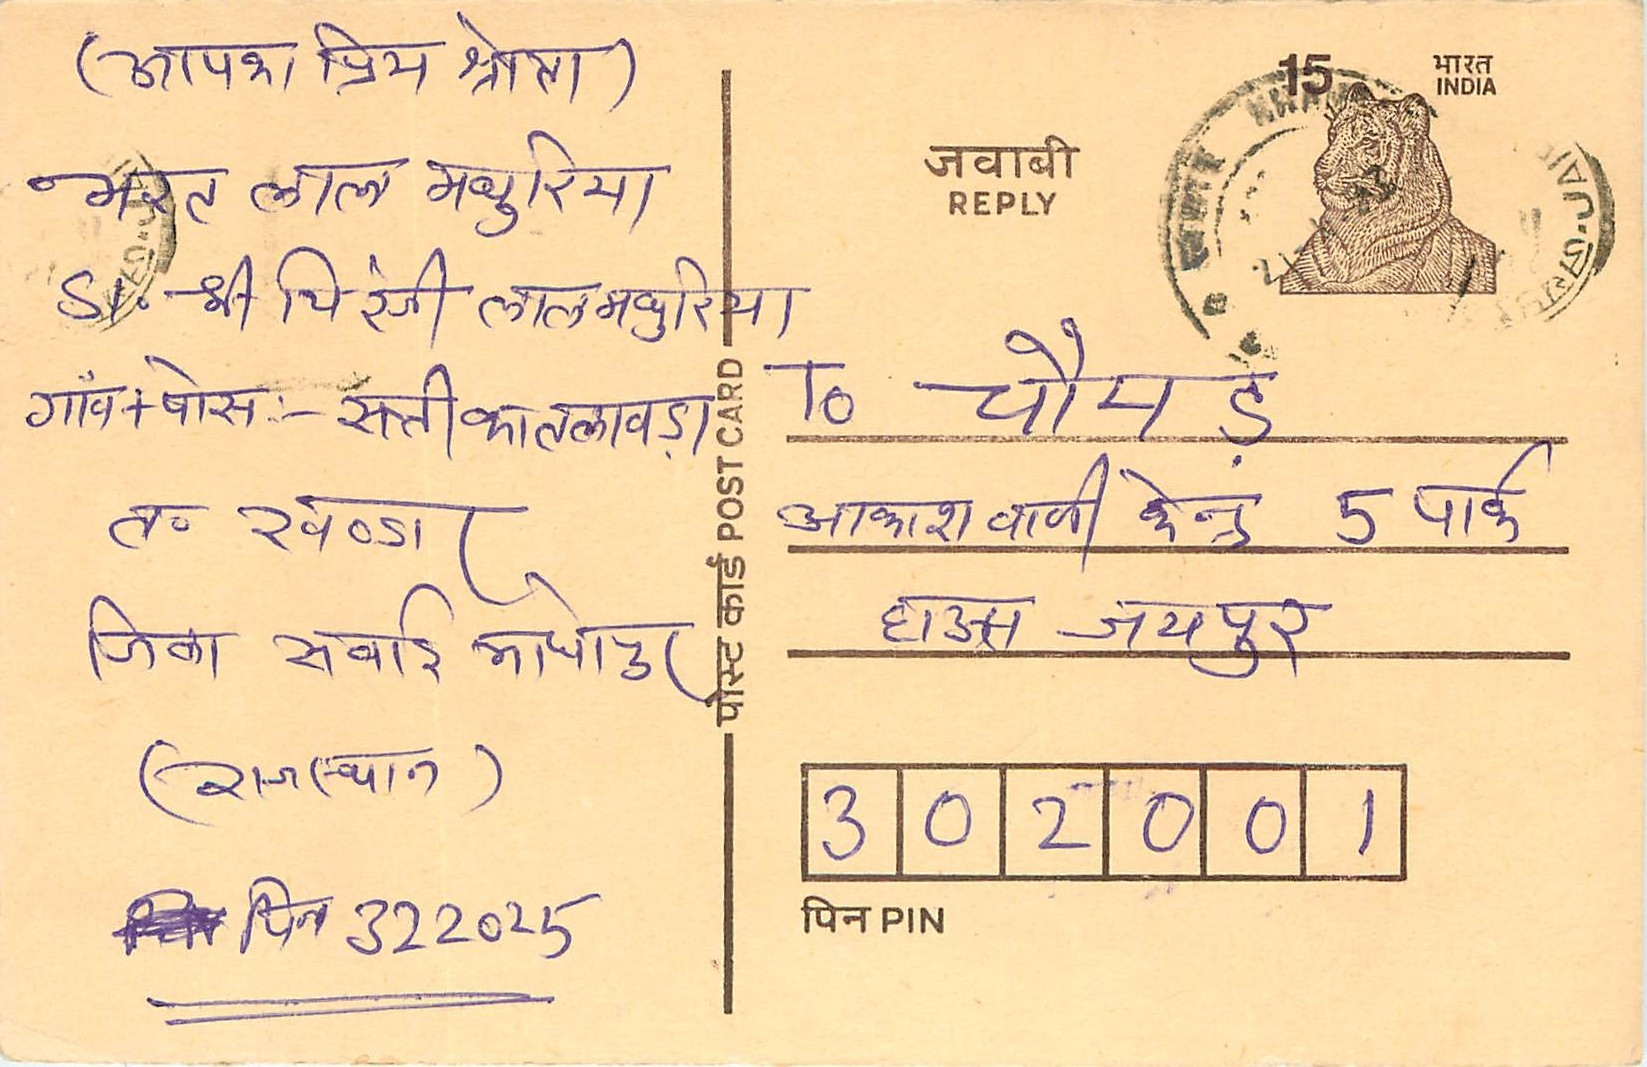 (आपका प्रिय श्रोता)
भरत लाल मथुरिया
S/o श्री चिरंजी लाल मथुरिया
गाँव + पोस्ट :-
त॰ खण्डार
जिला सवाई माधोपुर
(राजस्थान)
पिन 322025
पोस्ट कार्ड POST CARD
15
भारत
INDIA
जवाबी
REPLY
To चौमड़
आकाशवाणी केन्द्र 5 पार्क
हाउस जयपुर
302001
पिन PIN